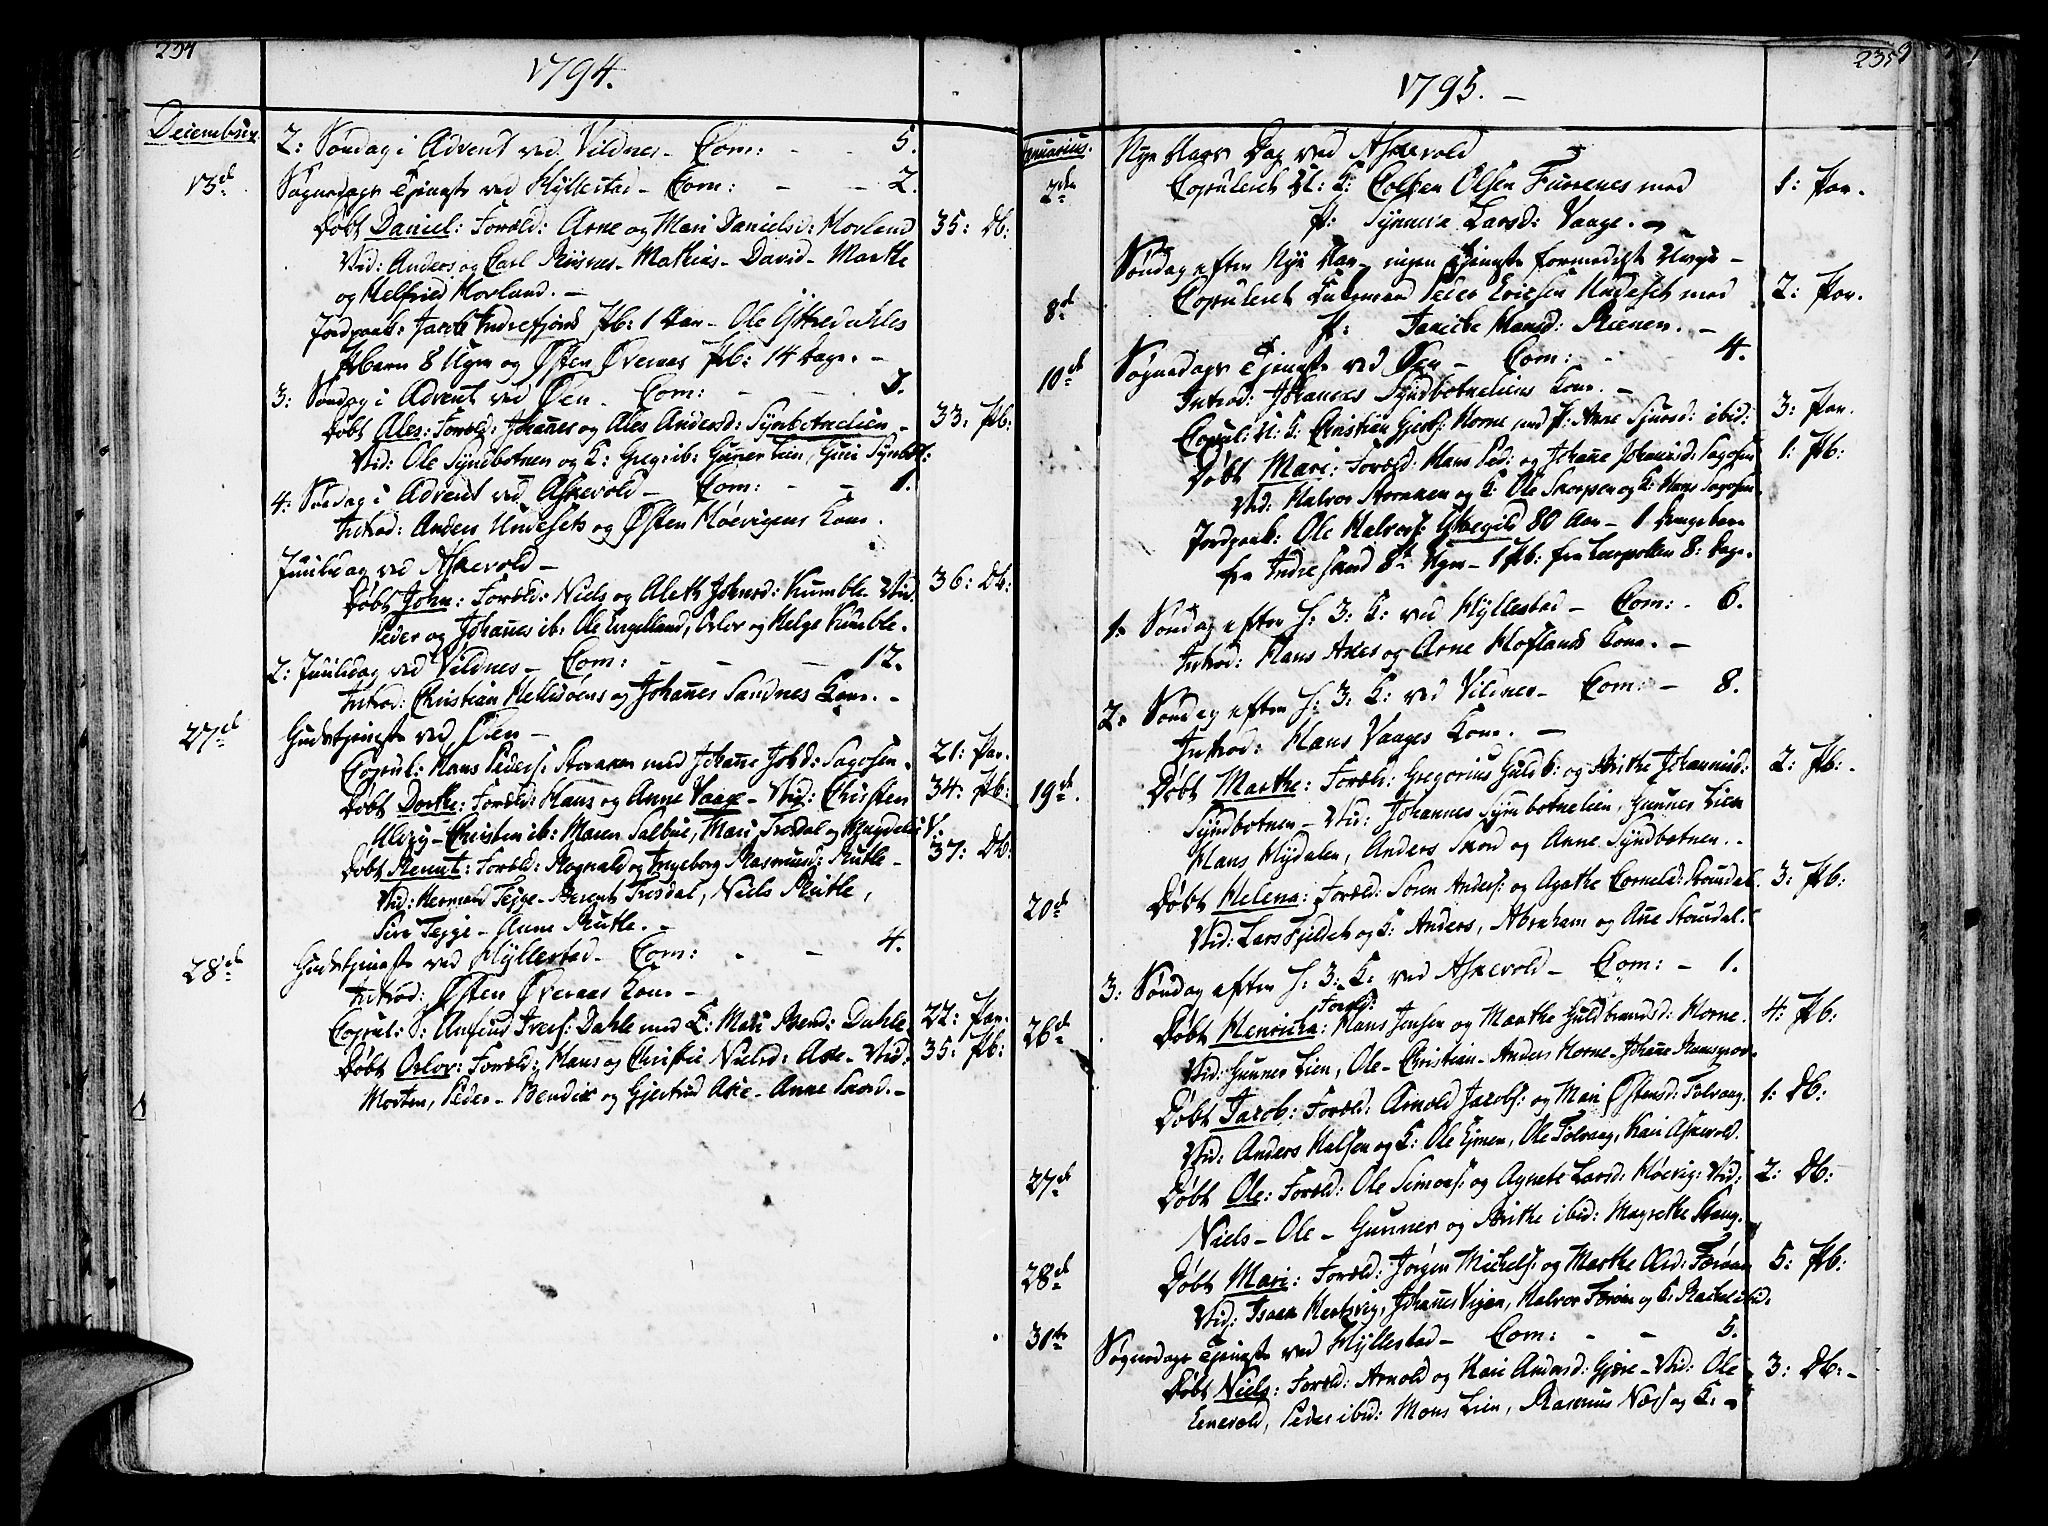 234
1794.
December.
2: Søndag i Advent ved Vildnes - Com: - - 5.
13d Søgnedags Tjeneste ved Hyllestad - Com: - - 2.
Døbt Daniel: Foræld: Arne og Mari Danielsd: Hovland 35: Db:
Vid: Anders og Carl Riisnes - Mathias - David - Marthe
og Helfried Hovland. -
Jordpaak: Jacob Indrefjord Pb: 1 Aar - Ole Ystredahles
Pbarn 8 Ugr og Østen Øveraas Pb: 14 Dage. -
3: Søndag i Advent ved Øen - Com: - - 3.
Døbt Ales: Foræld: Johannes og Ales Andersd: Synbotnelien - 33: Pb:
Vid: Ole Syndbotnen og K: Greg: ib: Gunner Lien, Guri Syndbt:
4: Søndag i Advent ved Askevold - Com: - - 1.
Introd: Anders Undesets og Østen Høevigens Kone.
Juuledag ved Askevold -
Døbt John: Foræld: Niels og Aleth Johnsd: Kumble Vid: 36: Db:
Peder og Johannes ib: Ole Engelland, Oslov og Helge Kumble.
2: Juuledag ved Vildnes - Com: - - - 12.
Introd: Christian Hellesøens og Johannes Sandnes Kone. -
27d Gudstjeneste ved Øen -
Copul: Hans Peders: Storaker med Johanne Johd: Sagosen. 21: Par.
Døbt Dorthe: Foræld: Hans og Anne Vaage - Vid: Christen 34: Pb:
Alvøy - Christen ib: Maren Salbue, Mari Tresdal og Magdele: V:
Døbt Berent: Foræld: Rognald og Ingeborg Rasmusd: Rutle - 37: Db:
Vid: Herman Tejge - Berent Tresdal, Niels Rutle,
Siri Tejge - Anne Rutle. -
28d Gudstjeneste ved Hyllestad - Com: - - 4.
Introd: Østen Øveraas Kone -
Copul: S: Amund Ivers: Dahle med E: Mari Bend: Dahle 22: Par.
Døbt Oslov: Foræld: Hans og Christie Nielsd: Ase - Vid: 35: Pb:
Morten, Peder - Bendix og Gjertrud Ase - Anne Skord. -
235
1795. -
Januarius.
Nye Aars Dag ved Askevold
2de Copuleret U: K: Colben Olsen Furrenes med 1: Par.
P: Synneve Larsd: Vaage. -
Søndag efter Nye Aar - ingen Tjeneste formedelst Uvejr -
8d Copuleret Enkemand Peder Ericsen Undeset med 2: Par.
P: Janiche Hansd: Risnes. -
10d Søgnedags Tjeneste ved Øen - Com: - 4.
Introd: Johannes Syndbotneliens Kone. -
Copul: U: K: Christian Gjerts: Horne med P: Anne Sjursd: ibid: 3: Par.
Døbt Mari: Foræld: Hans Ped: og Johanne Johannisd: Sagosen 1: Pb:
Vid: Halvor Storaker og K: Ole Skorpen og K: Hans Sagosen.
Jordpaak: Ole Halvors: Ytregild 80 Aar - 1 Drengebarn
fra Indre Sund 8te Ugr - 1 Pb: fra Leerpollen 8: Dage.
1: Søndag efter H: 3: K: ved Hyllestad - Com: - 6.
Introd: Hans Ases og Arne Hoflands Kone. -
2: Søndag efter H: 3: K: ved Vildnes - Com: - 8.
Introd: Hans Vaages Kone. -
19d. Døbt Marthe: Foræld: Gregorius Guldb: og Brithe Johannisd: 2: Pb: -
Syndbotnen - Vid: Johannes Syndbotnelien, Gunner Lien
Hans Mydalen, Anders Skord og Anne Syndbotnen. -
20d Døbt Helena: Foræld: Søren Anders: og Agathe Corneld: Stondal. 3: Pb:
Vid: Lars Fjeldet og K: Anders, Abraham og Ane Stondal.
3: Søndag efter H: 3: K: ved Askevold - Com: - 1.
26d Døbt Henricha: Foræld: Hans Jensen og Marthe Guldbrandsd: Horne. 4: Pb:
Vid: Gunner Lien, Ole - Christian - Anders Horne - Johanne Ramsgror.
Døbt Jacob: Foræld: Arnold Jacobs: og Mari Østensd: Tolvaag. 1: Db:
Vid: Anders Halsen og K: Ole Ejmen, Ole Tolvaag, Kari Askevold.
27d Døbt Ole: Foræld: Ole Simons: og Agnete Larsd: Høevig: Vid: 2: Db:
Niels - Ole - Gunner og Brithe ibid: Magrethe Stang.
28d Døbt Mari: Foræld: Jørgen Michels: og Marthe Asd: Færøen 5: Pb:
Vid: Isaac Hertzvig, Johannes Vigen, Halvor Færøe og K: Rachel ibid.
30te Søgnedags Tjeneste ved Hyllestad - Com: - - 5.
Døbt Niels: Foræld: Arnold og Kari Andersd: Gjøre - Vid: Ole 3: Db: -
Eenevold, Peder ibid: Mons Lien, Rasmus Næss og K. -